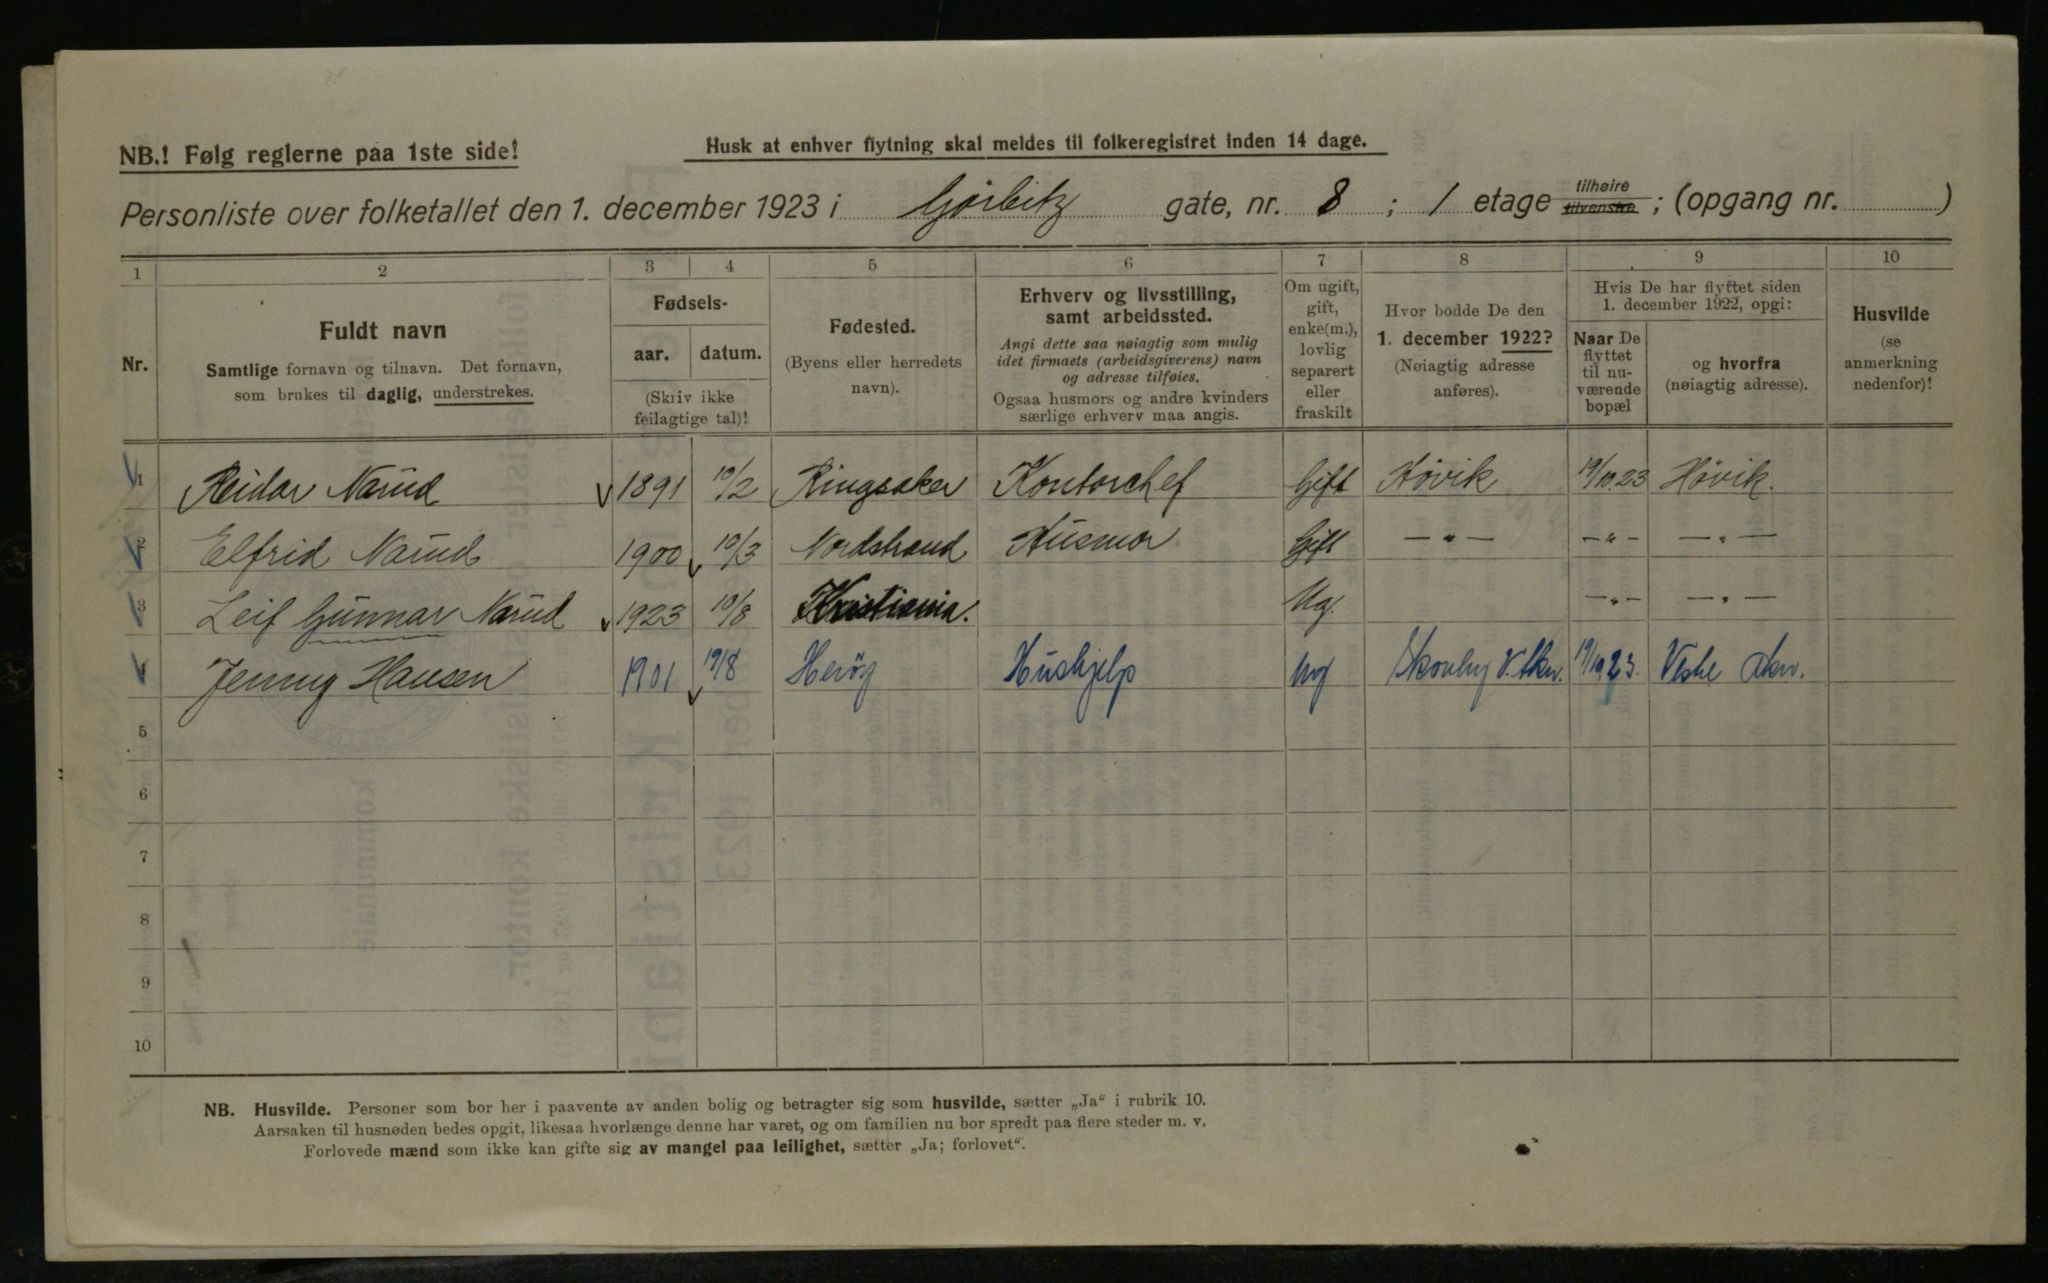 NB.! Følg reglerne paa 1ste side!
Husk at enhver flytning skal meldes til folkeregistret inden 14 dage.
Personliste over folketallet den 1. december 1923 i Gørbitz gate, nr. 8 ; 1 etage tilhøire tilvenstre ; (opgang nr. )
1 2 3 4 5 6 7 8 9 10
Nr.
Fuldt navn
Samtlige fornavn og tilnavn. Det fornavn,
som brukes til daglig, understrekes.
Fødsels-
aar. datum.
(Skriv ikke
feilagtige tal)!
Fødested.
(Byens eller herredets
navn).
Erhverv og livsstilling,
samt arbeidssted.
Angi dette saa nøiagtig som mulig
idet firmaets (arbeidsgiverens) navn
og adresse tilføies.
Ogsaa husmors og andre kvinders
særlige erhverv maa angis.
Om ugift,
gift,
enke(m.),
lovlig
separert
eller
fraskilt
Hvor bodde De den
1. december 1922?
(Nøiagtig adresse
anføres).
Hvis De har flyttet siden
1. december 1922, opgi:
Naar De
flyttet
til nu-
værende
bopæl
og hvorfra
(nøiagtig adresse).
Husvilde
(se
anmerkning
nedenfor)!
1 Reidar Narud 1891 10/2 Ringsaker Kontorchef Gift Høvik 19/10 23 Høvik.
2 Elfrid Narud 1900 10/3 Nordstrand Husmor Gift — „ — — „ — — „ —
3 Leif Gunnar Narud 1923 10/8 Kristiania. Ug. — „ — — „ —
4 Jenny Hansen 1901 19/8 Herøy Hushjelp Ug 19/10 23. Vestre Aker.
5
6
7
8
9
10
NB. Husvilde. Personer som bor her i paavente av anden bolig og betragter sig som husvilde, sætter „Ja“ i rubrik 10.
Aarsaken til husnøden bedes opgit, likesaa hvorlænge denne har varet, og om familien nu bor spredt paa flere steder m. v.
Forlovede mænd som ikke kan gifte sig av mangel paa leilighet, sætter „Ja; forlovet“.